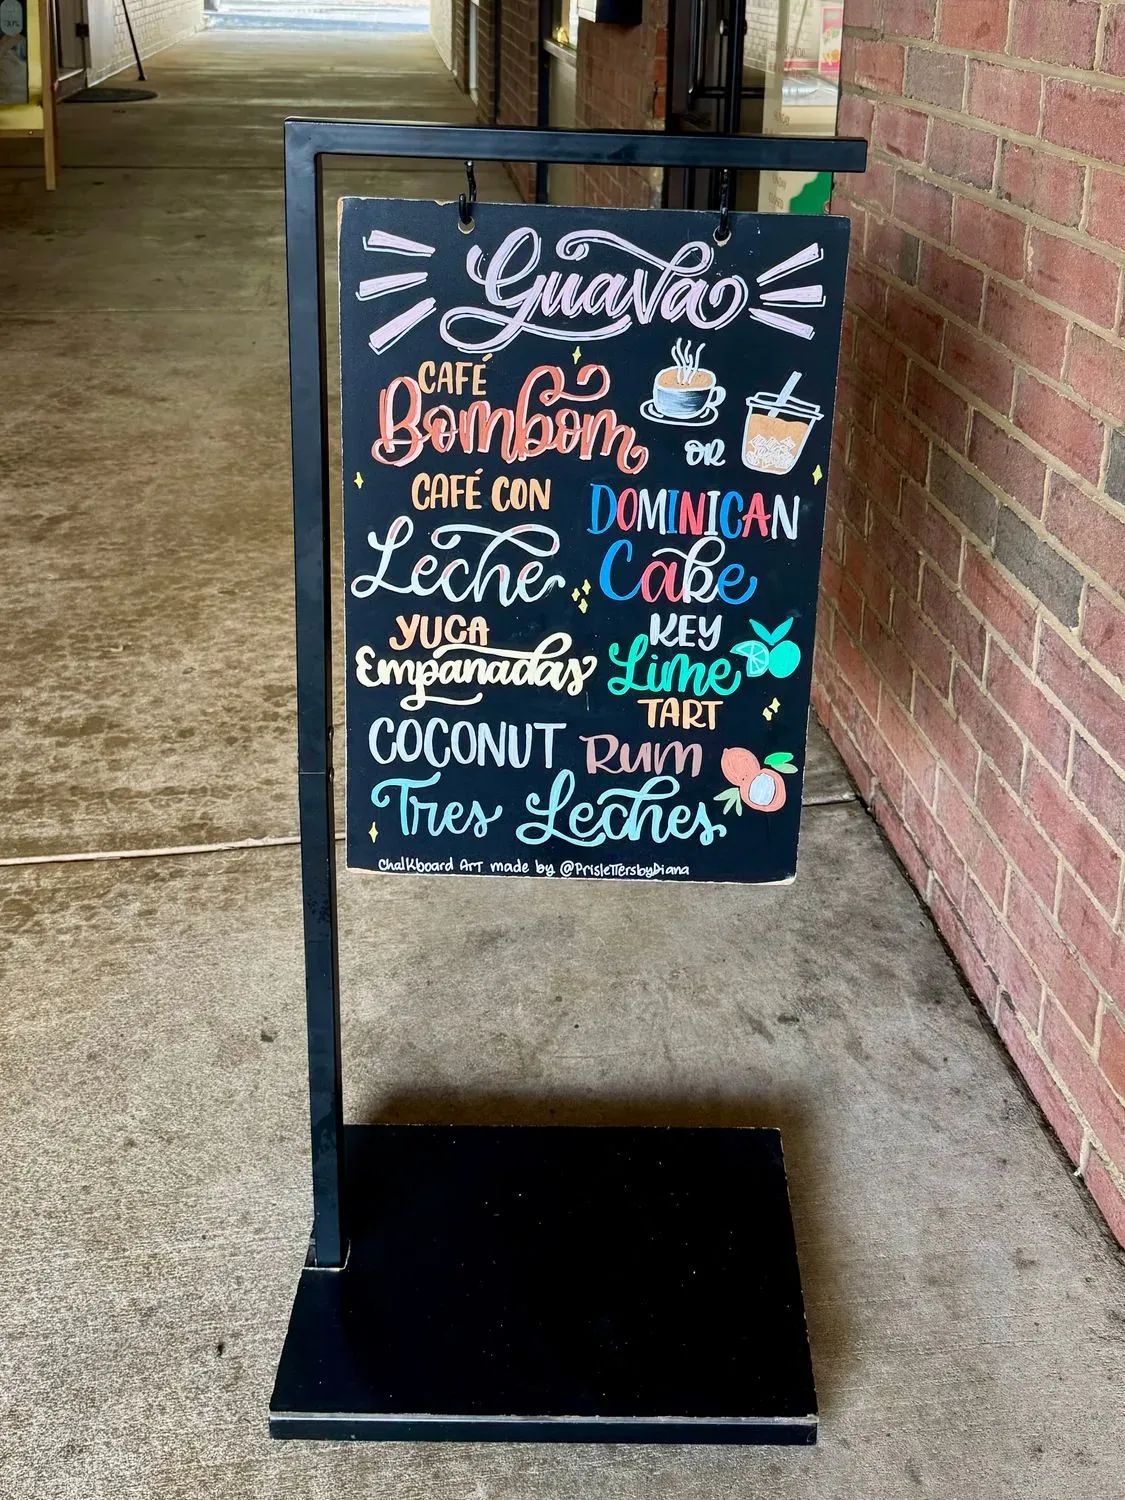 Guava
CAFÉ
Bombom
OR
CAFÉ CON
Leche
DOMINICAN
Cake
YUCA
Empanadas
KEY
Lime
TART
COCONUT Rum
Tres Leches
Chalkboard Art made by @PrislettersbyDiana